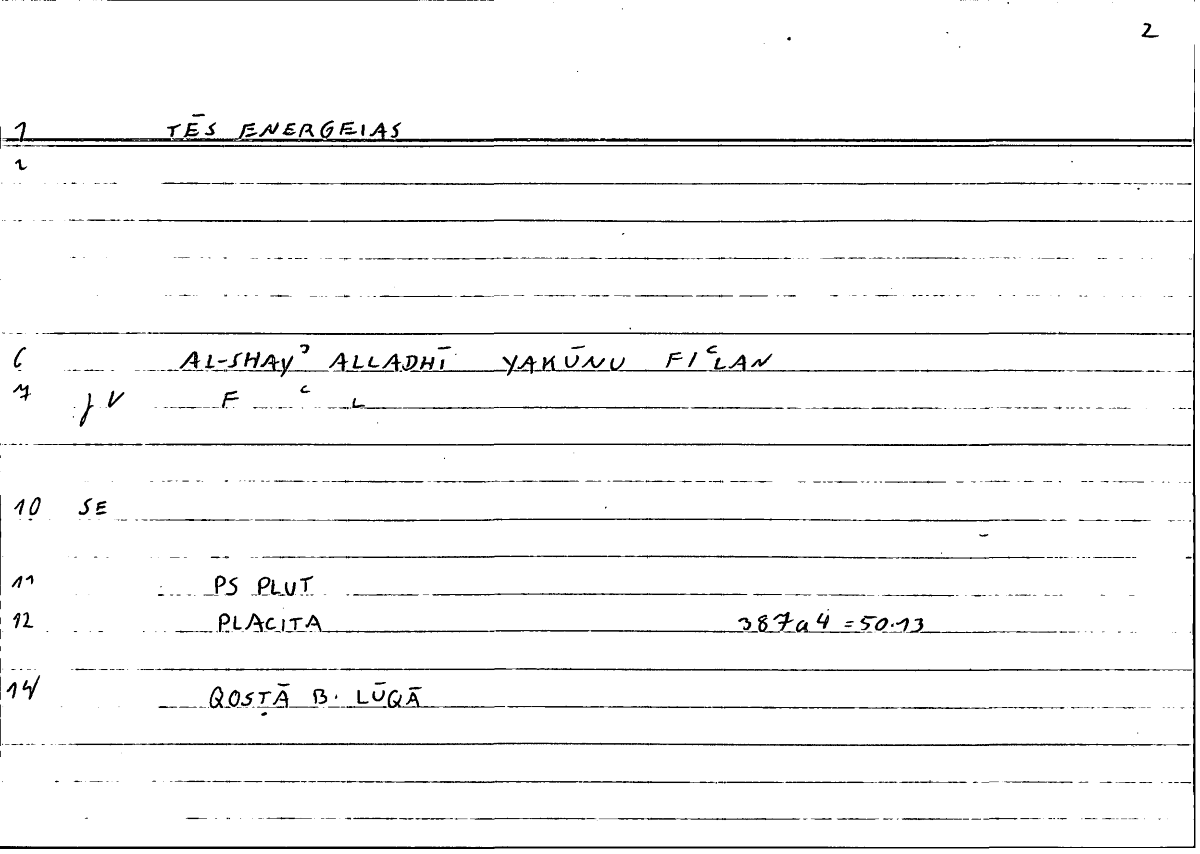 2
1 TĒS ENERGEIAS
2
6 AL-SHAYʾ ALLADHĪ YAKŪNU FIʿLAN
7 V F ʿ L
10 SE
11 PS PLUT
12 PLACITA 387a4 = 50.13
14 QOSṬĀ B. LŪQĀ